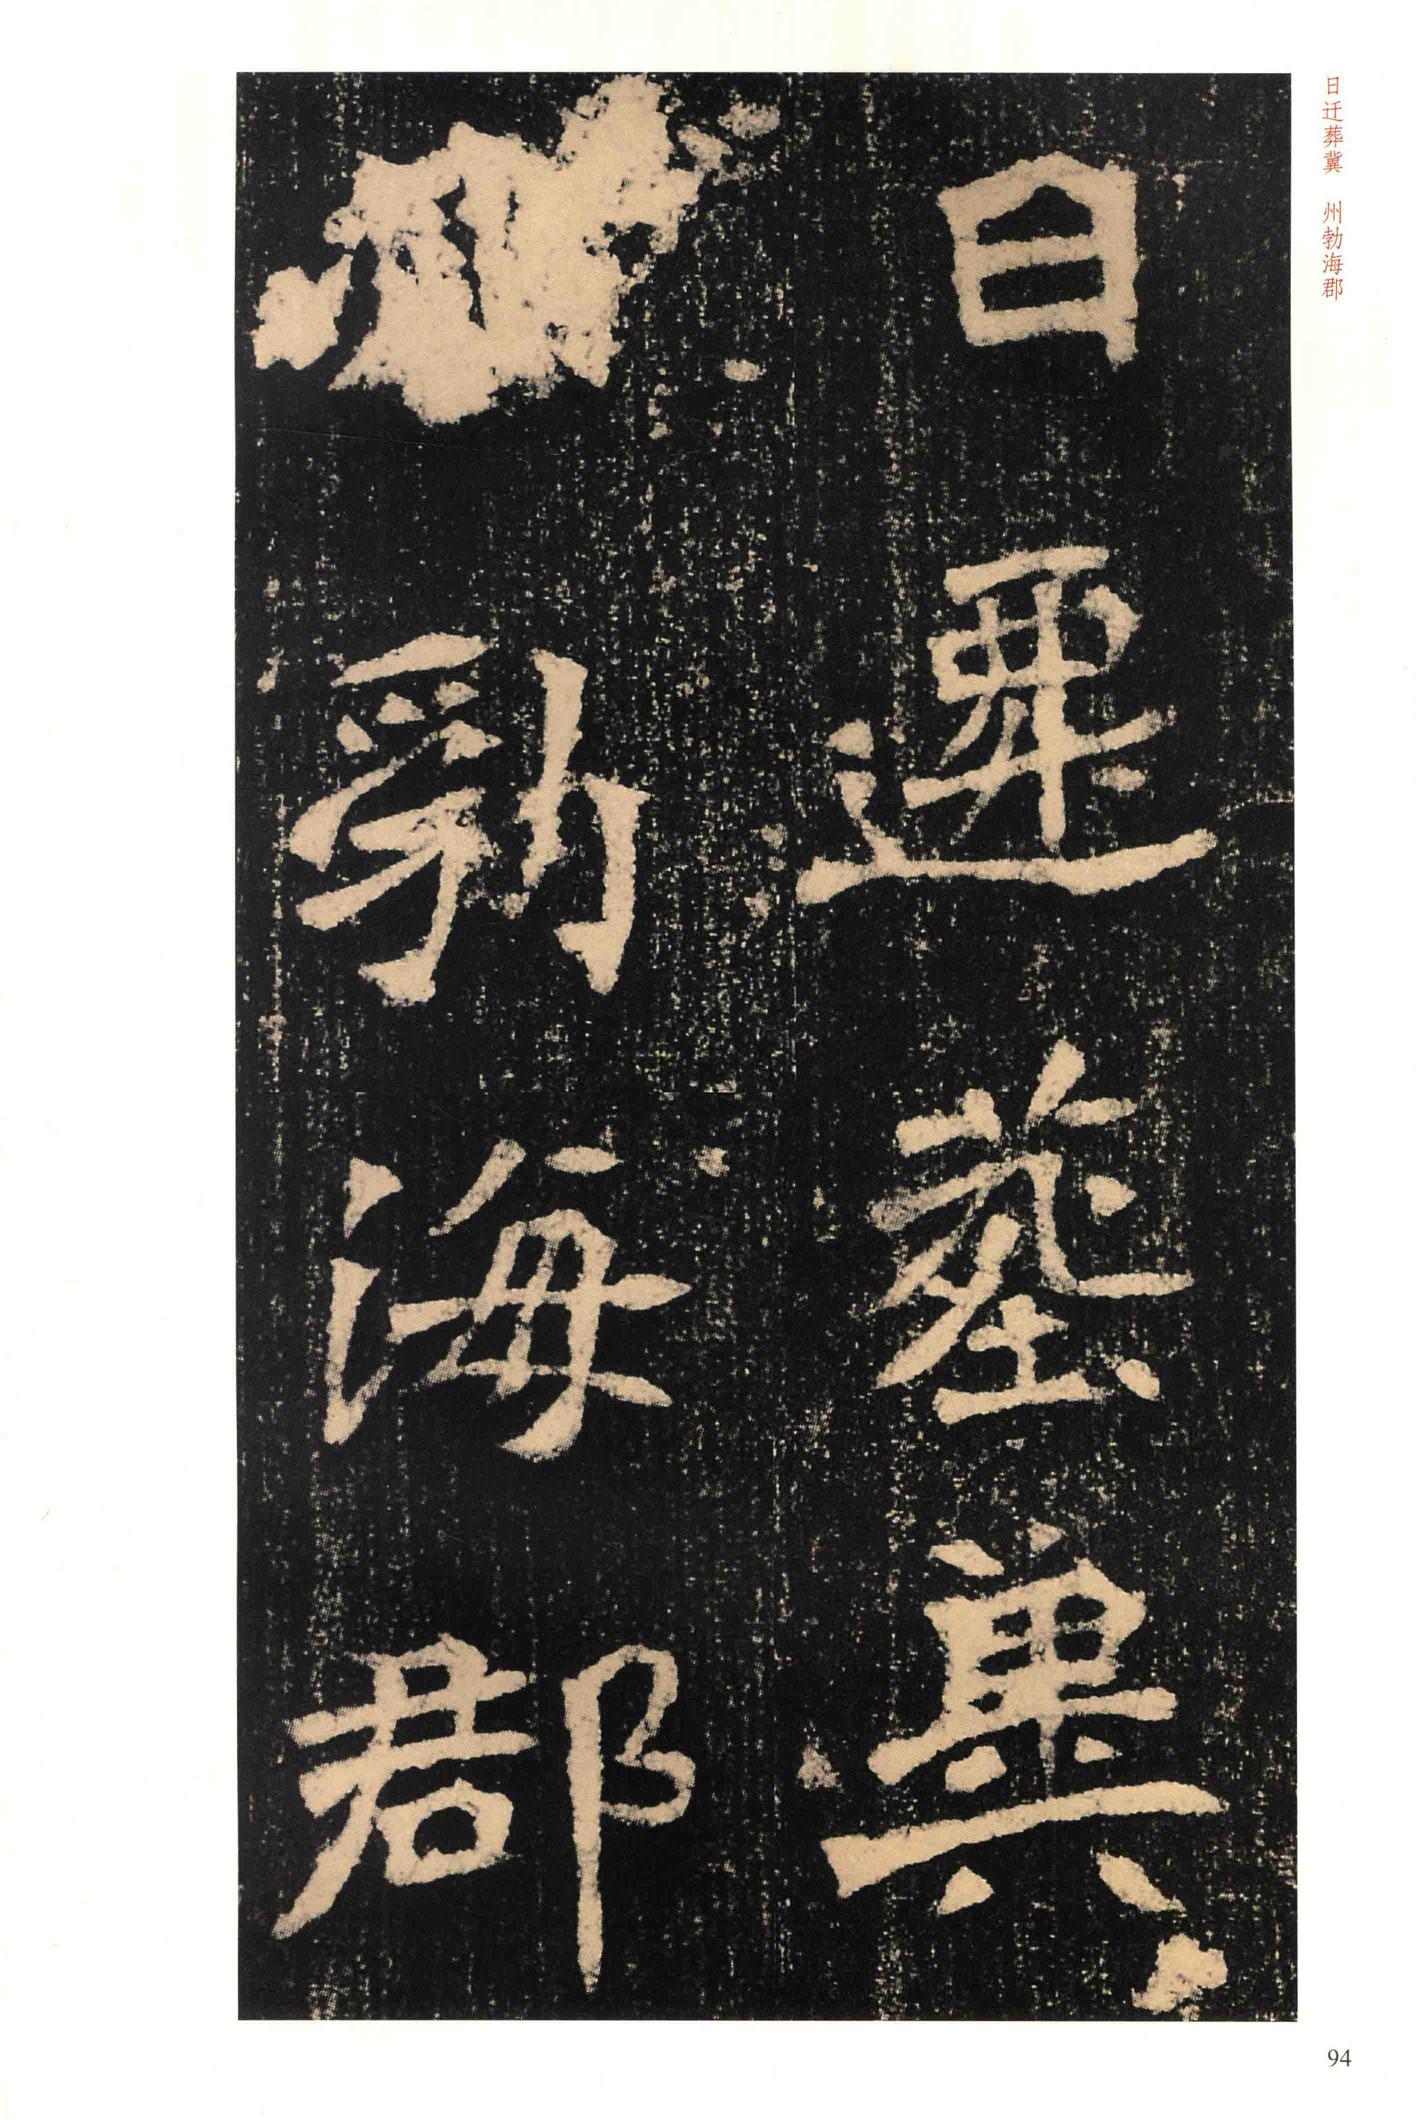 日迁葬冀 州勃海郡
日遷葬冀
勃海郡
94